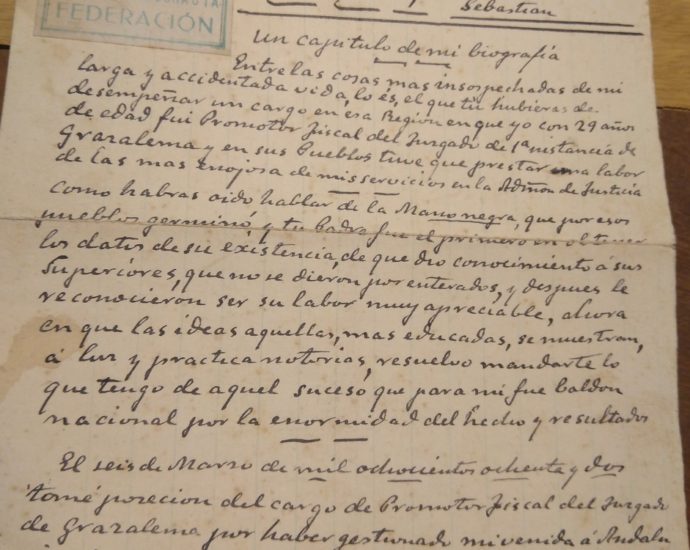 FEDERACIÓN
Sebastian
Un capitulo de mi biografía
Entre las cosas mas insospechadas de mi
larga y accidentada vida, lo és, el que tu hubieras de
desempeñar un cargo en esa Region en que yo con 29 años
de edad fui Promotor Fiscal del Juzgado de 1ª instancia de
Grazalema y en sus Pueblos tuve que prestar una labor
de las mas enojosa de mis servicios en la Admon de Justicia
como habras oido hablar de la Mano negra, que por esos
pueblos germinó, y tu padre fue el primero en obtener
los datos de su existencia, de que dio conocimiento á sus
Superiores, que no se dieron por enterados, y despues le
reconocieron ser su labor muy apreciable, ahora
en que las ideas aquellas, mas educadas, se muestran,
á luz y practica notorias, resuelvo mandarte lo
que tengo de aquel suceso que para mi fue baldon
nacional por la enormidad del hecho y resultados
El seis de Marzo de mil ochocientos ochenta y dos
tomé posecion del cargo de Promotor Fiscal del Juzgado
de Grazalema por haber gestionado mi venida á Andalu